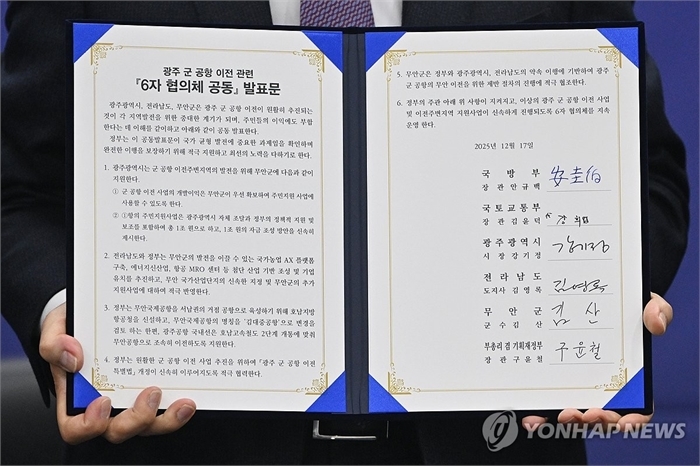 광주 군 공항 이전 관련
『6자 협의체 공동』 발표문
광주광역시, 전라남도, 무안군은 광주 군 공항 이전이 원활히 추진되는
것이 각 지역발전을 위한 중대한 계기가 되며, 주민들의 이익에도 부합
한다는 데 이해를 같이하고 아래와 같이 공동 발표한다.
정부는 이 공동발표문이 국가 균형 발전에 중요한 과제임을 확인하며
완전한 이행을 보장하기 위해 적극 지원하고 최선의 노력을 다하기로 한다.
1. 광주광역시는 군 공항 이전주변지역의 발전을 위해 무안군에 다음과 같이
지원한다.
① 군 공항 이전 사업의 개발이익은 무안군이 우선 확보하여 주민지원 사업에
사용할 수 있도록 한다.
② ①항의 주민지원사업은 광주광역시 자체 조달과 정부의 정책적 지원 및
보조를 포함하여 총 1조 원으로 하고, 1조 원의 자금 조성 방안을 신속히
제시한다.
2. 전라남도와 정부는 무안군의 발전을 이끌 수 있는 국가농업 AX 플랫폼
구축, 에너지신산업, 항공 MRO 센터 등 첨단 산업 기반 조성 및 기업
유치를 추진하고, 무안 국가산업단지의 신속한 지정 및 무안군의 추가
지원사업에 대하여 적극 반영한다.
3. 정부는 무안국제공항을 서남권의 거점 공항으로 육성하기 위해 호남지방
항공청을 신설하고, 무안국제공항의 명칭을 '김대중공항'으로 변경을
검토 하는 한편, 광주공항 국내선은 호남고속철도 2단계 개통에 맞춰
무안공항으로 조속히 이전하도록 지원한다.
4. 정부는 원활한 군 공항 이전 사업 추진을 위하여 「광주 군 공항 이전
특별법」 개정이 신속히 이루어지도록 적극 협력한다.
5. 무안군은 정부와 광주광역시, 전라남도의 약속 이행에 기반하여 광주
군 공항의 무안 이전을 위한 제반 절차의 진행에 적극 협조한다.
6. 정부의 주관 아래 위 사항이 지켜지고, 이상의 광주 군 공항 이전 사업
및 이전주변지역 지원사업이 신속하게 진행되도록 6자 협의체를 지속
운영 한다.
2025년 12월 17일
국방부
장관 안규백 安圭伯
국토교통부
장관 김윤덕
광주광역시
시장 강기정 강기정
전라남도
도지사 김영록 김영록
무안군
군수 김산 김산
부총리 겸 기획재정부
장관 구윤철 구윤철
YONHAP NEWS